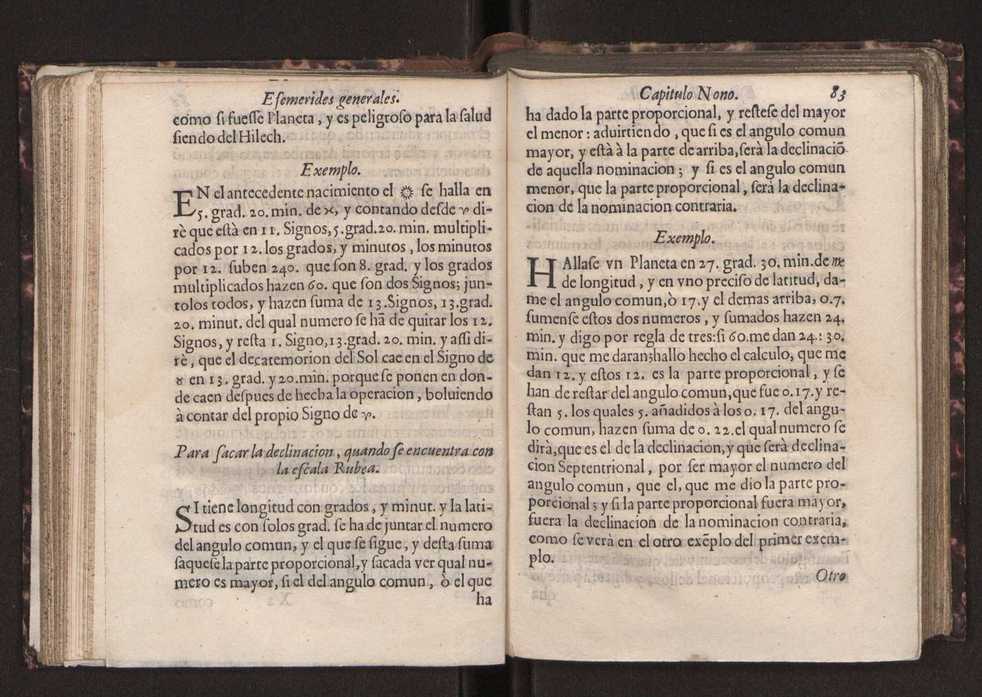 Efemerides generales.
como si fuesse Planeta, y es peligroso para la salud
siendo del Hilech.
Exemplo.
EN el antecedente nacimiento el ☼ se halla en
5. grad. 20. min. de ♓, y contando desde ♈ di-
rè que està en 11. Signos, 5. grad. 20. min. multipli-
cados por 12. los grados, y minutos, los minutos
por 12. suben 240. que son 8. grad. y los grados
multiplicados hazen 60. que son dos Signos; jun-
tolos todos, y hazen suma de 13. Signos, 13. grad.
20. minut. del qual numero se hā de quitar los 12.
Signos, y resta 1. Signo, 13. grad. 20. min. y assi di-
rè, que el decatemorion del Sol cae en el Signo de
♉ en 13. grad. y 20. min. porque se ponen en don-
de caen despues de hecha la operacion, boluiendo
à contar del propio Signo de ♈.
Para sacar la declinacion, quando se encuentra con
la escala Rubea.
SI tiene longitud con grados, y minut. y la lati-
tud es con solos grad. se ha de juntar el numero
del angulo comun, y el que se sigue, y desta suma
saquese la parte proporcional, y sacada ver qual nu-
mero es mayor, si el del angulo comun, ò el que
ha
Capitulo Nono. 83
ha dado la parte proporcional, y restese del mayor
el menor: aduirtiendo, que si es el angulo comun
mayor, y està à la parte de arriba, serà la declinaciō
de aquella nominacion; y si es el angulo comun
menor, que la parte proporcional, serà la declina-
cion de la nominacion contraria.
Exemplo.
HAllase vn Planeta en 27. grad. 30. min. de ♏
de longitud, y en vno preciso de latitud, da-
me el angulo comun, ò 17. y el demas arriba, 0. 7.
sumense estos dos numeros, y sumados hazen 24.
min. y digo por regla de tres: si 60. me dan 24.: 30.
min. que me daran; hallo hecho el calculo, que me
dan 12. y estos 12. es la parte proporcional, y se
han de restar del angulo comun, que fue 0. 17. y re-
stan 5. los quales 5. añadidos à los 0. 17. del angu-
lo comun, hazen suma de 0. 22. el qual numero se
dirà, que es el de la declinacion, y que serà declina-
cion Septentrional, por ser mayor el numero del
angulo comun, que el, que me dio la parte pro-
porcional; y si la parte proporcional fuera mayor,
fuera la declinacion de la nominacion contraria,
como se verà en el otro exēplo del primer exem-
plo.
Otro